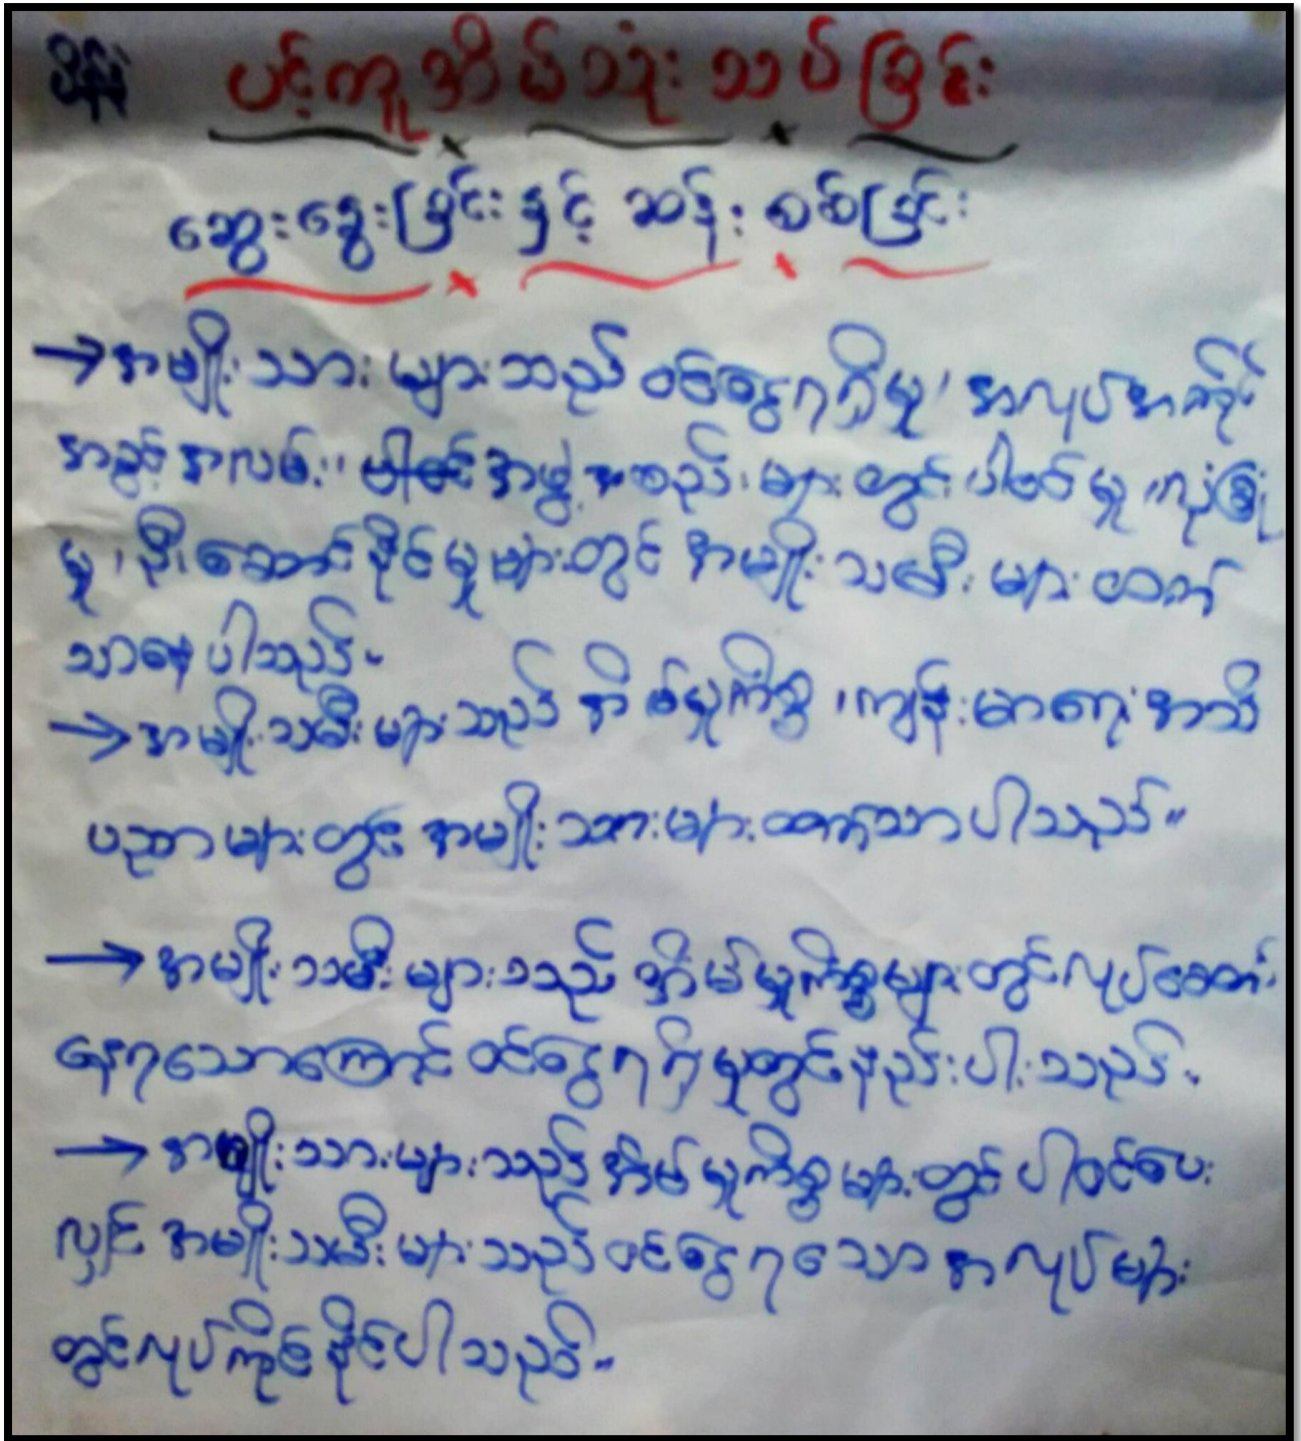 ပိန္နဲပင့်ကူအိမ်သုံးသပ်ခြင်း
ဆွေးနွေးခြင်းနှင့် ဆန်းစစ်ခြင်း
→ အမျိုးသားများသည် ဝင်ငွေရရှိမှု၊ အလုပ်အကိုင်
အခွင့်အလမ်း၊ အဖွဲ့အစည်းများတွင် ပါဝင်မှု၊ လုံခြုံ
မှု၊ ဦးဆောင်နိုင်မှုများတွင် အမျိုးသမီးများထက်
သာနေပါသည်။
→ အမျိုးသမီးများသည် အိမ်မှုကိစ္စ၊ ကျန်းမာရေးအသိ
ပညာများတွင် အမျိုးသားများထက်သာပါသည်။
→ အမျိုးသမီးများသည် အိမ်မှုကိစ္စများတွင်လုပ်ဆောင်
နေရသောကြောင့် ဝင်ငွေရရှိမှုတွင်နည်းပါးသည်။
→ အမျိုးသားများသည် အိမ်မှုကိစ္စများတွင် ပါဝင်ပေး
လျှင် အမျိုးသမီးများသည် ဝင်ငွေရသော အလုပ်များ
တွင်လုပ်ကိုင်နိုင်ပါသည်။